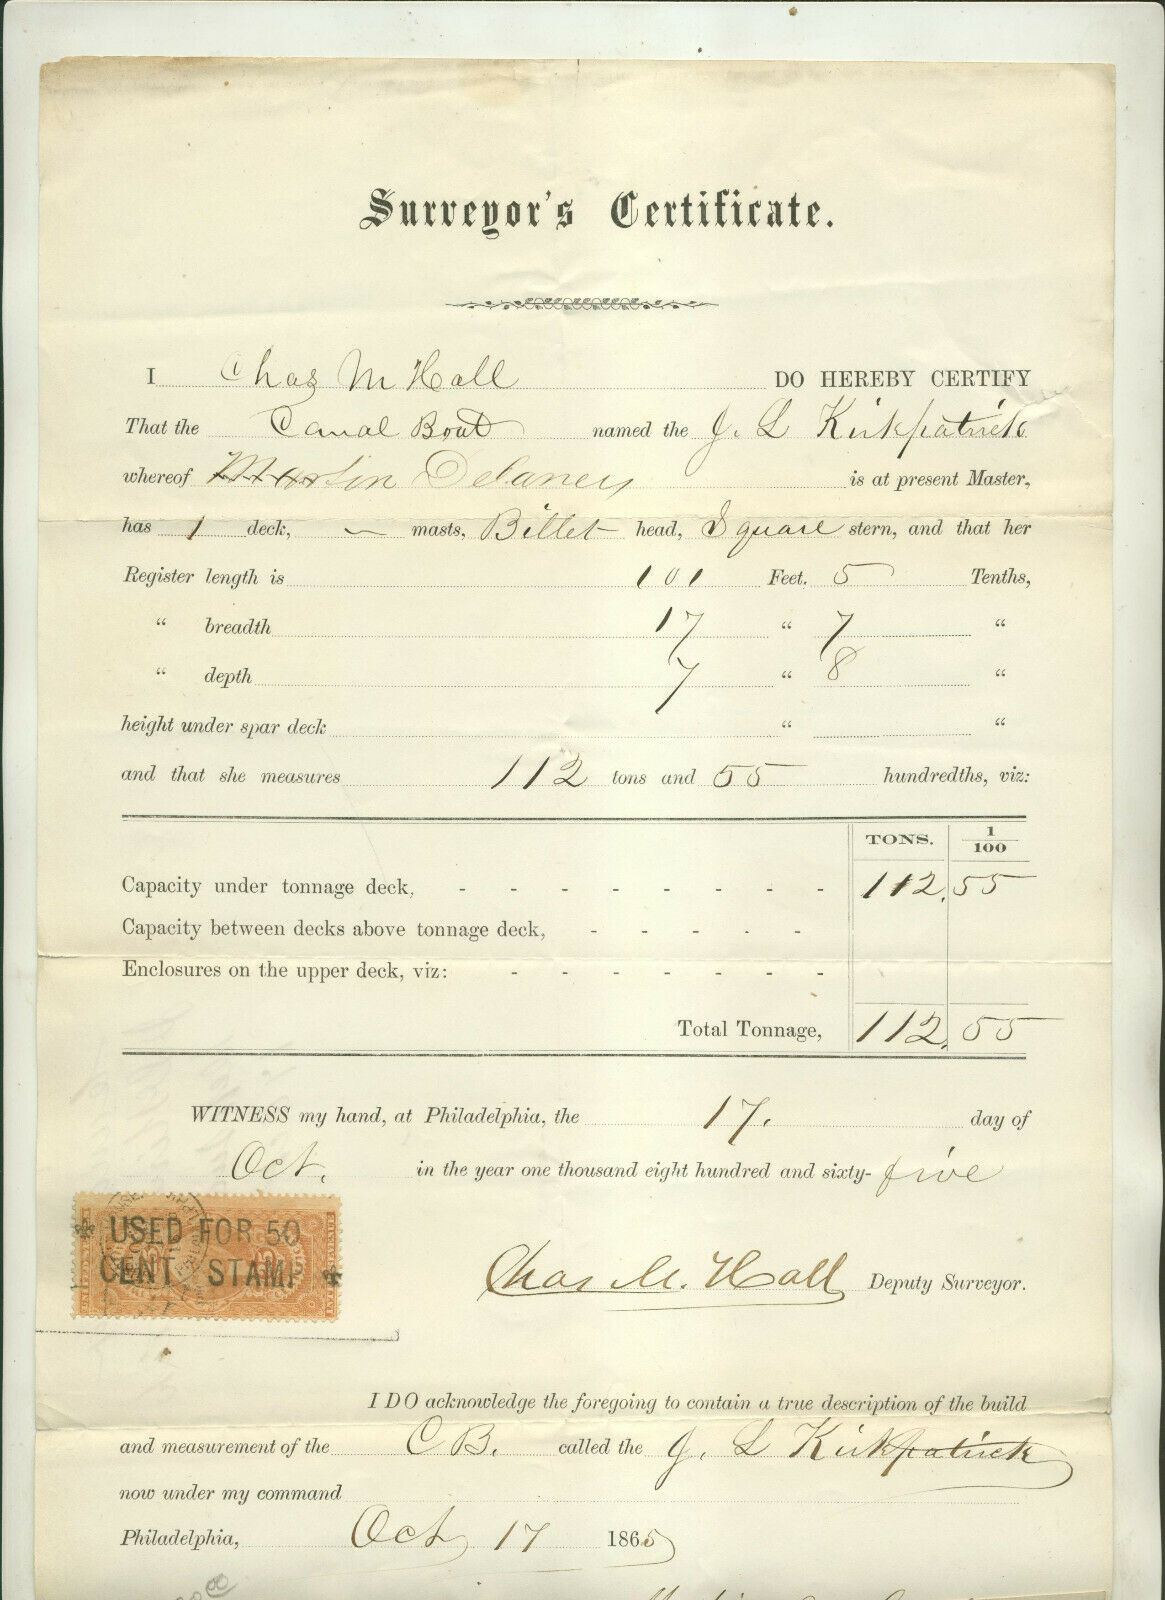 Surveyor's Certificate.
I Chas M Hall DO HEREBY CERTIFY
That the Canal Boat named the J. L Kirkpatrick
whereof Martin Delaney is at present Master,
has 1 deck, — masts, Billet head, Square stern, and that her
Register length is 101 Feet. 5 Tenths,
“ breadth 17 “ 7 “
“ depth 7 “ 8 “
height under spar deck “ “
and that she measures 112 tons and 55 hundredths, viz:
TONS. 1/100
Capacity under tonnage deck, - - - - - - - - 112. 55
Capacity between decks above tonnage deck, - - - - -
Enclosures on the upper deck, viz: - - - - - - - -
Total Tonnage, 112. 55
WITNESS my hand, at Philadelphia, the 17. day of
Oct. in the year one thousand eight hundred and sixty-five
USED FOR 50
CENT STAMP
Chas M. Hall Deputy Surveyor.
I DO acknowledge the foregoing to contain a true description of the build
and measurement of the C B. called the J. L Kirkpatrick
now under my command
Philadelphia, Oct 17 1865